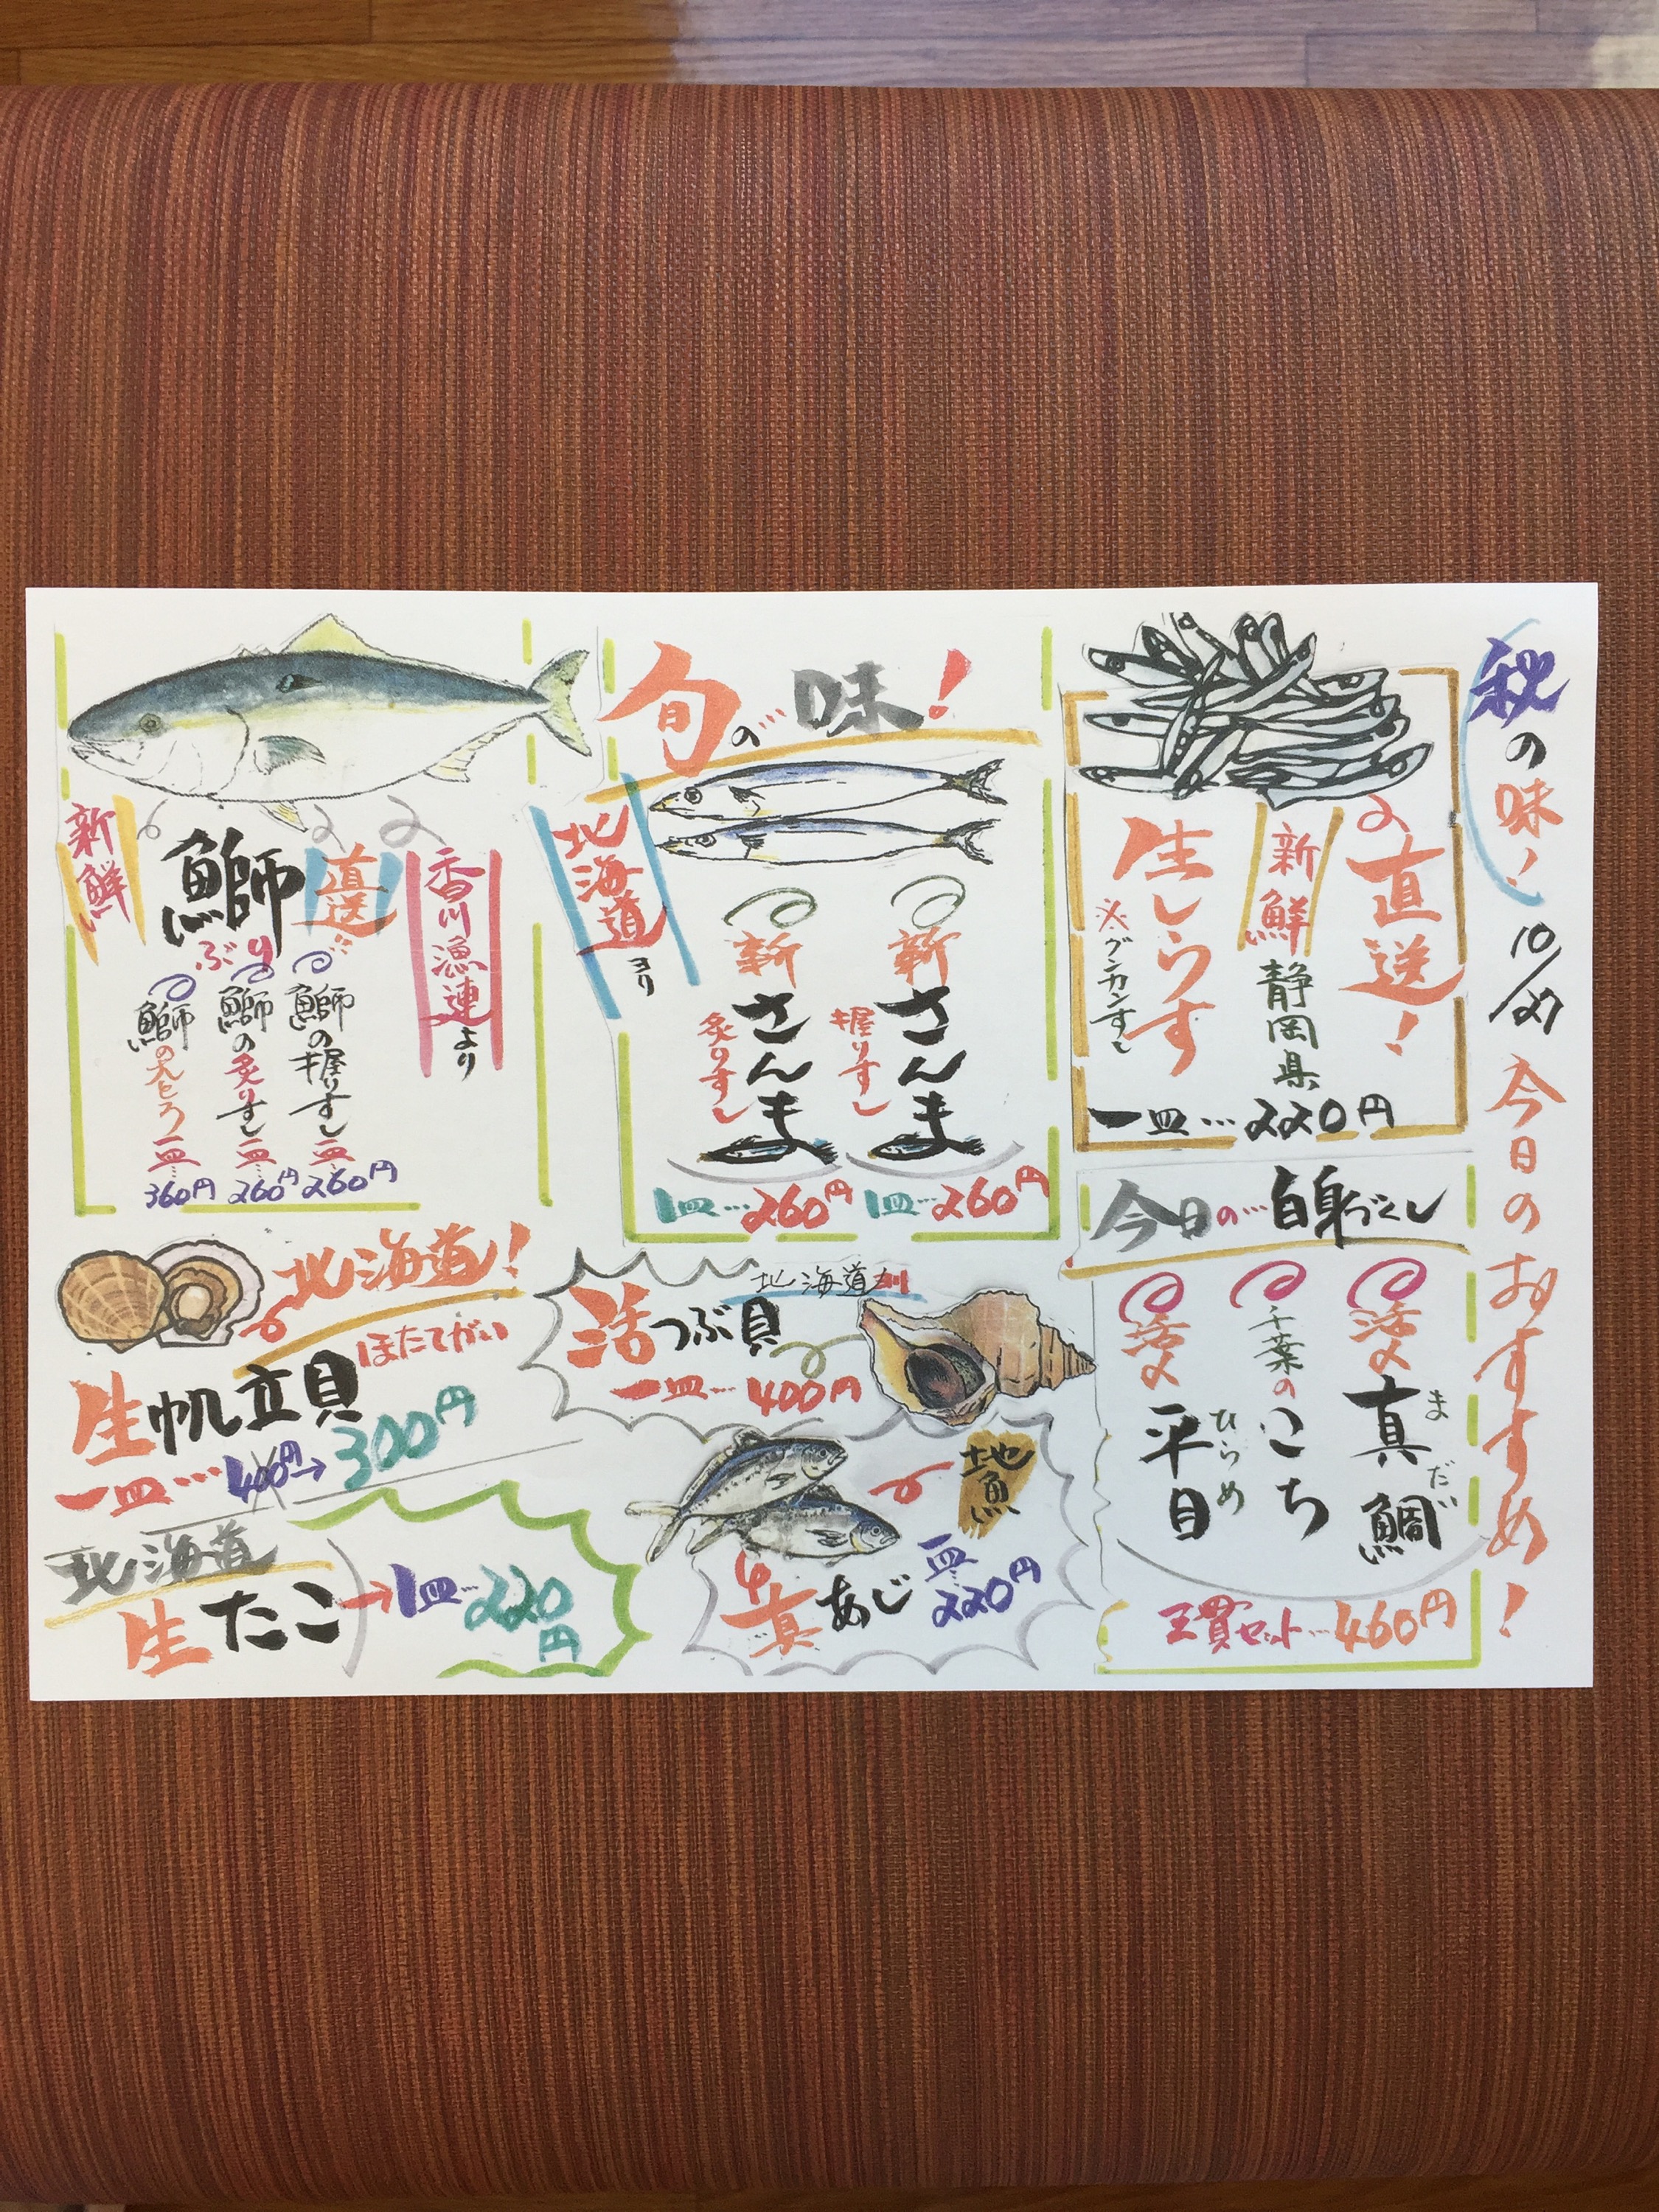 秋の味！
10/27
今日のおすすめ！
直送！
新鮮
静岡県
生しらす
※グンカンすし
一皿…220円
今日の…白身づくし
活〆
真鯛
まだい
千葉の
こち
活〆
平目
ひらめ
三貫セット…460円
旬の…味！
北海道
ヨリ
新さんま
握りすし
1皿…260円
新さんま
炙りすし
1皿…260円
香川漁連より
直送
鰤
ぶり
新鮮
鰤の握りすし
一皿…260円
鰤の炙りすし
一皿…260円
鰤の大とろ
一皿…360円
北海道！
ほたてがい
生帆立貝
一皿…400円→300円
北海道
活つぶ貝
一皿…400円
地魚
真あじ
一皿…220円
北海道
生たこ→1皿…220円